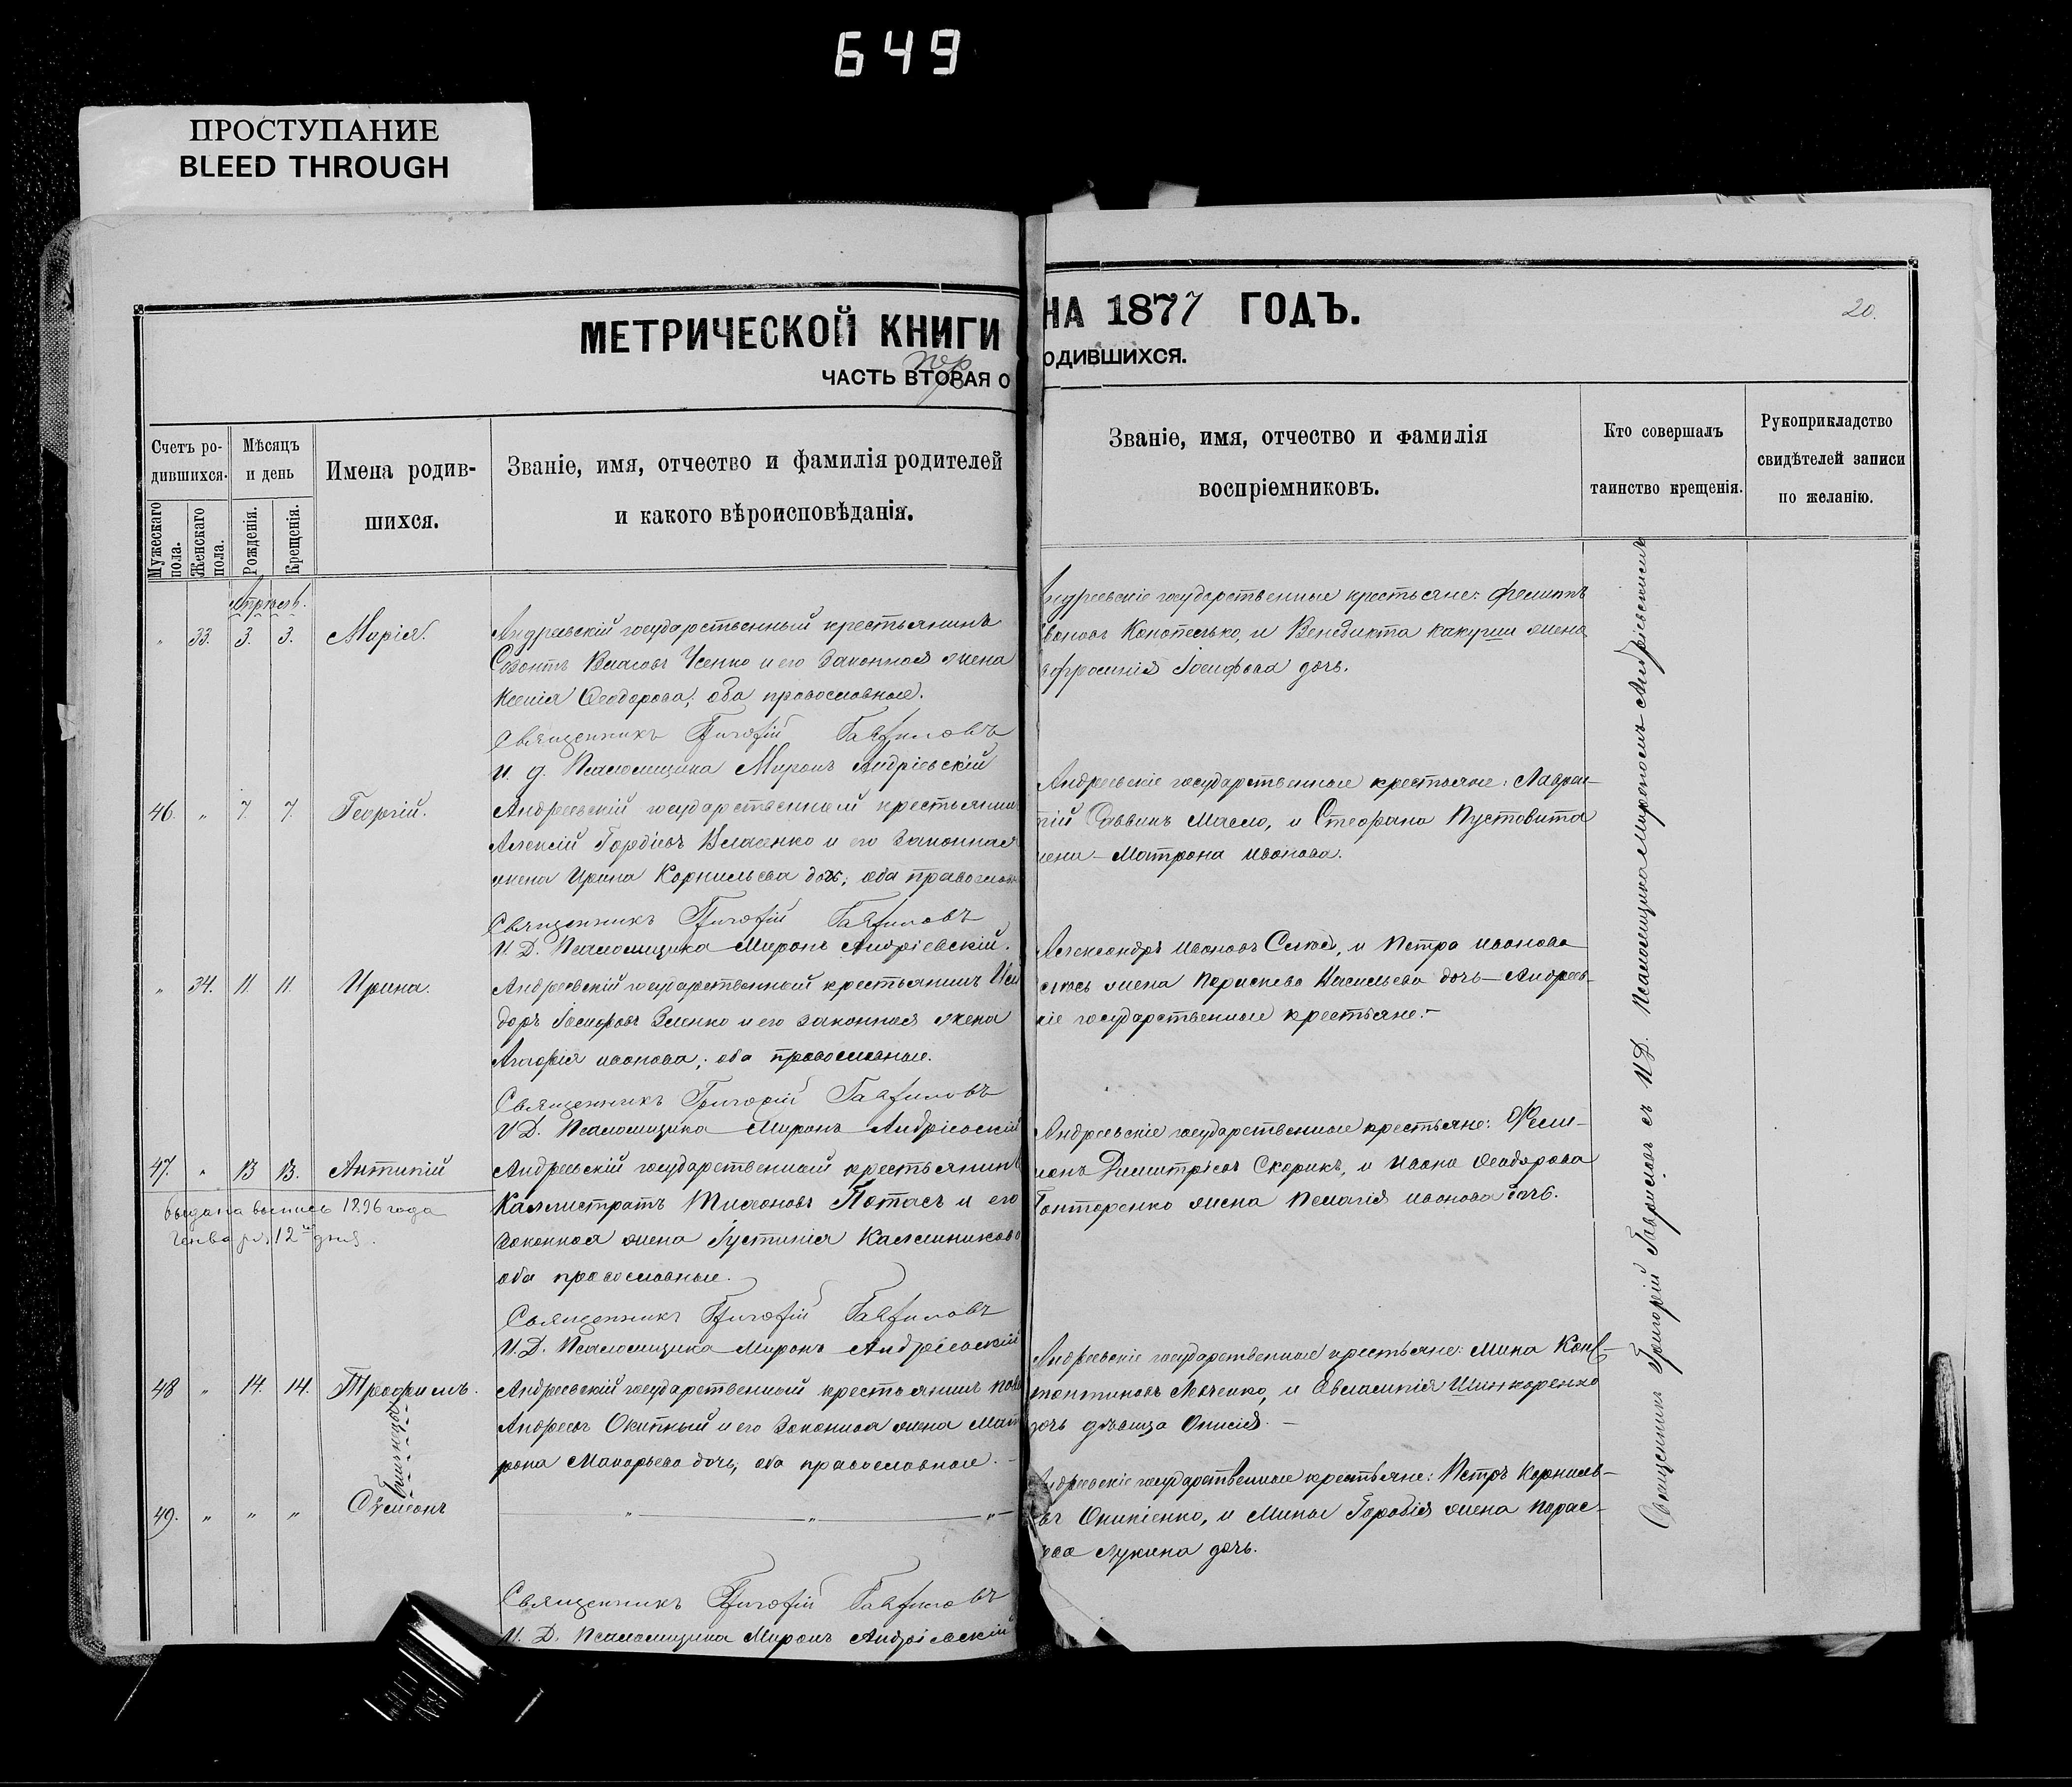 649
ПРОСТУПАНИЕ
BLEED THROUGH
МЕТРИЧЕСКОЙ КНИГИ
ЧАСТЬ ВТОРАЯ О
Счетъ ро-
дившихся.
Мѣсяцъ
и день
Имена родив-
шихся.
Званіе, имя, отчество и фамилія родителей
и какого вѣроисповѣданія.
Мужескаго
пола.
Женскаго
пола.
Рожденія.
Крещенія.
33. 3. 3. Марія. Андреевскій государственный крестьянинъ
Созонтъ Власовъ Усенко и его законная жена
Ксенія Ѳеодорова; оба православные.
Священникъ Григорій Гавриловъ
И. д. Псаломщика Миронъ Андріевскій
46. „ 7. 7. Георгій. Андреевскій государственный крестьянин
Алексій Гордіевъ Власенко и его законная
жена Ирина Корнильева дочь; оба православн
Священникъ Григорій Гавриловъ
И. Д. Псаломщика Миронъ Андріевскій.
„ 34. 11. 11. Ирина. Андреевскій государственный крестьянинъ Иси
доръ Іосифовъ Зленко и его законная жена
Агафія Иванова; оба православные.
Священникъ Григорій Гавриловъ
И Д. Псаломщика Миронъ Андріевскій
47. „ 13 13. Антипій Андреевскій государственный крестьянинъ
выдана выпись 1896 года
Генваря 12 дня.
Каллистратъ Тихоновъ Потасъ и его
законная жена Іустинія Каллиникова
оба православные.
Священникъ Григорій Гавриловъ
И. Д. Псаломщика Миронъ Андріевскій
48 „ 14. 14. Трофимъ. Андреевскій государственный крестьянинъ
Андреевъ Окипный и его законная жена Мат
рона Макарьева дочь; оба православные.
Близнецы
49. „ „ „ Сѵмеонъ „ „ „
Священникъ Григорій Гавриловъ
И. Д. Псаломщика Миронъ Андріевскій
НА 1877 ГОДЪ.
20.
ОДИВШИХСЯ.
Званіе, имя, отчество и фамилія
воспріемниковъ.
Кто совершалъ
таинство крещенія.
Рукоприкладство
свидѣтелей записи
по желанію.
Андреевскіе государственные крестьяне: Филиппъ
вановъ Конотелько, и Венедикта жена
вфросинія Іосифова дочь.
Андреевскіе государственные крестьяне: Лаврен-
тій Саввинъ Масло, и Стефана Пустовита
жена – Матрона Иванова.
Александръ Ивановъ и Петра Иванова
жена Параскева Васильева дочь – Андреев-
скіе государственные крестьяне. –
Андреевскіе государственные крестьяне: Фили-
монъ Димитріевъ Скорикъ, и Ивана Ѳеодорова
Гонтаренко жена Пелагія Иванова дочь.
Андреевскіе государственные крестьяне: Мина Конс-
тантиновъ и Евлампія Шинкаренко
дочь дѣвица Онисія. –
Андреевскіе государственные крестьяне: Петръ Корниль-
евъ Окипенко, и Мины Горобія жена Парас-
кева Лукина дочь.
Священникъ Григорій Гавриловъ съ И.Д. Псаломщика Мирономъ Андріевскимъ